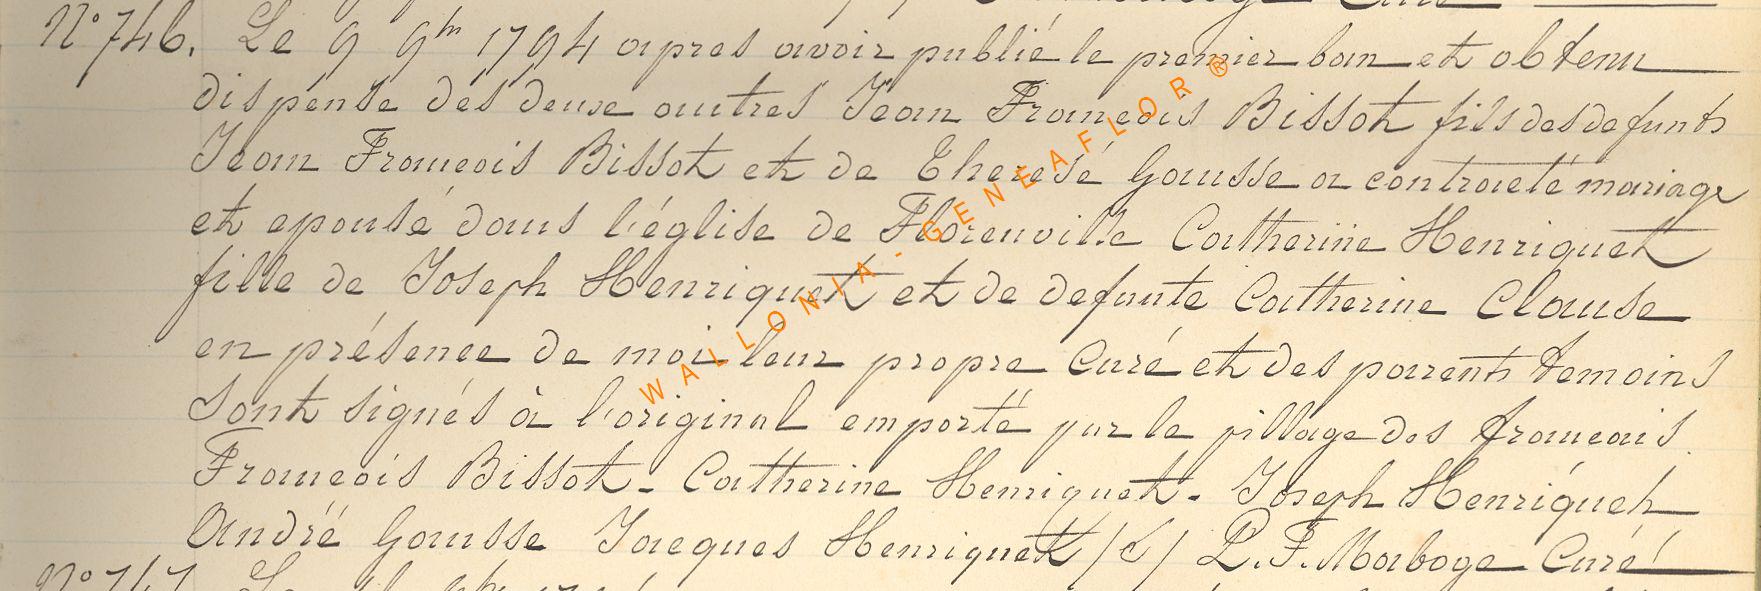 N° 746. Le 9 9bre 1794 apres avoir publié le premier ban et obtenu
dispense des deux autres Jean Francois Bissot fils des defunts
Jean Francois Bissot et de Therese Gausse a contracté mariage
et epousé dans l'église de Florenville Catherine Henriquet
fille de Joseph Henriquet et de defunte Catherine Clause
en présence de moi leur propre Curé et des parents temoins
sont signés à l'original emporté par le pillage des francais.
Francois Bissot - Catherine Henriquet - Joseph Henriquet
André Gausse Jacques Henriquet /S/ P. F. Marboge Curé
N° 747
WALLONIA-GENEAFLOR ®